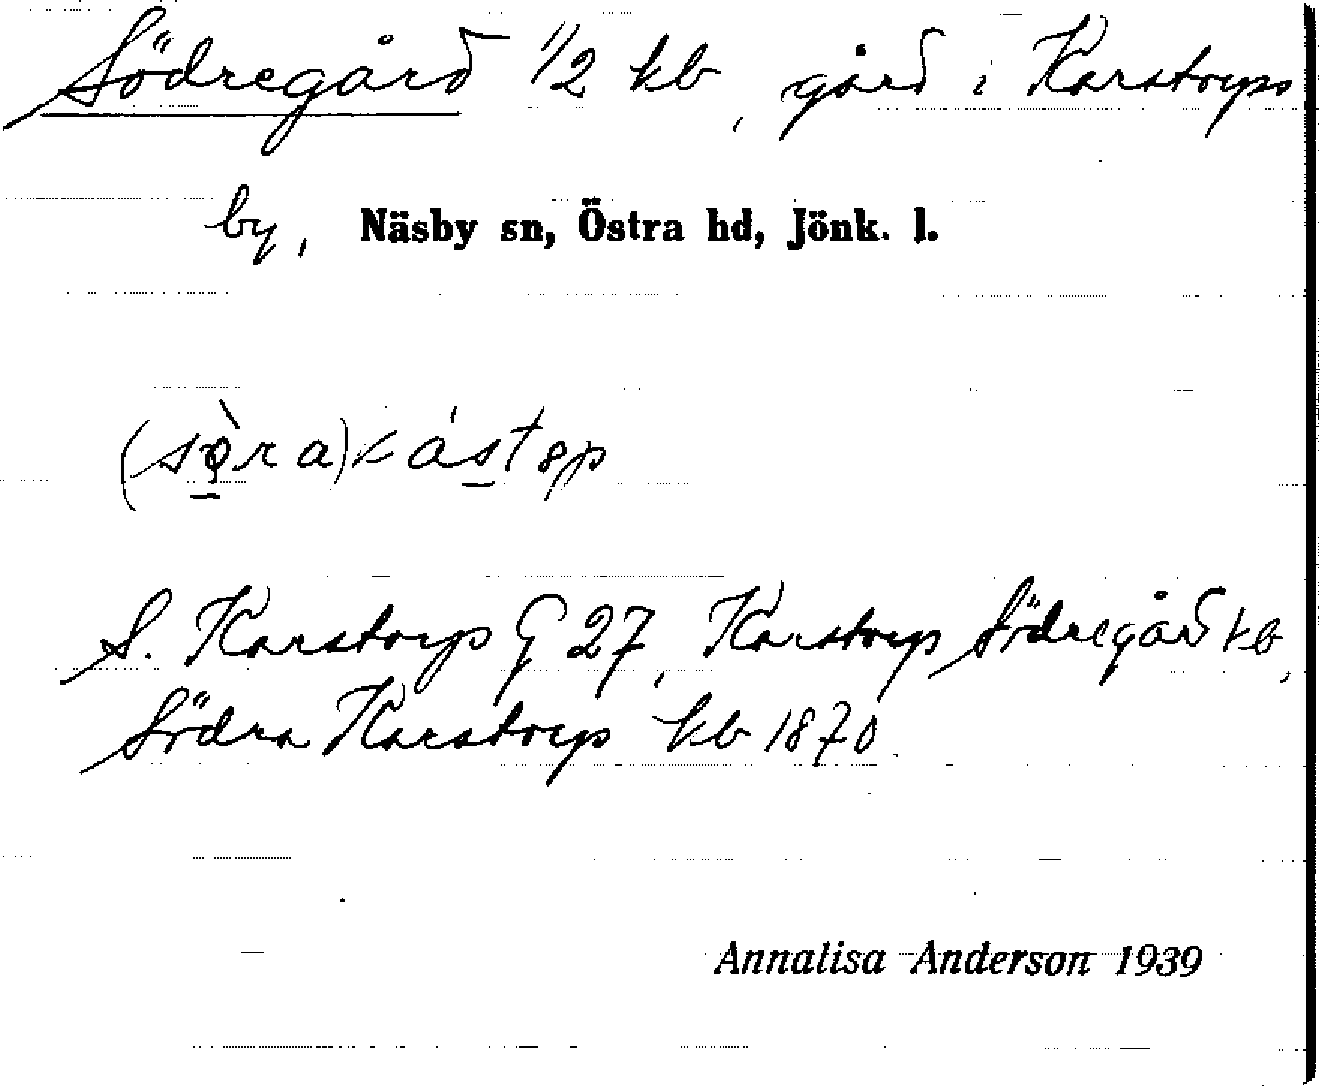 Södregård 1/2 kb, gård i Karstorps
by, Näsby sn, Östra hd, Jönk. l.
(sø̀ra) kástəp
S. Karstorp G 27, Karstorp Södregård kb,
Södra Karstorp kb 1870
Annalisa Anderson 1939